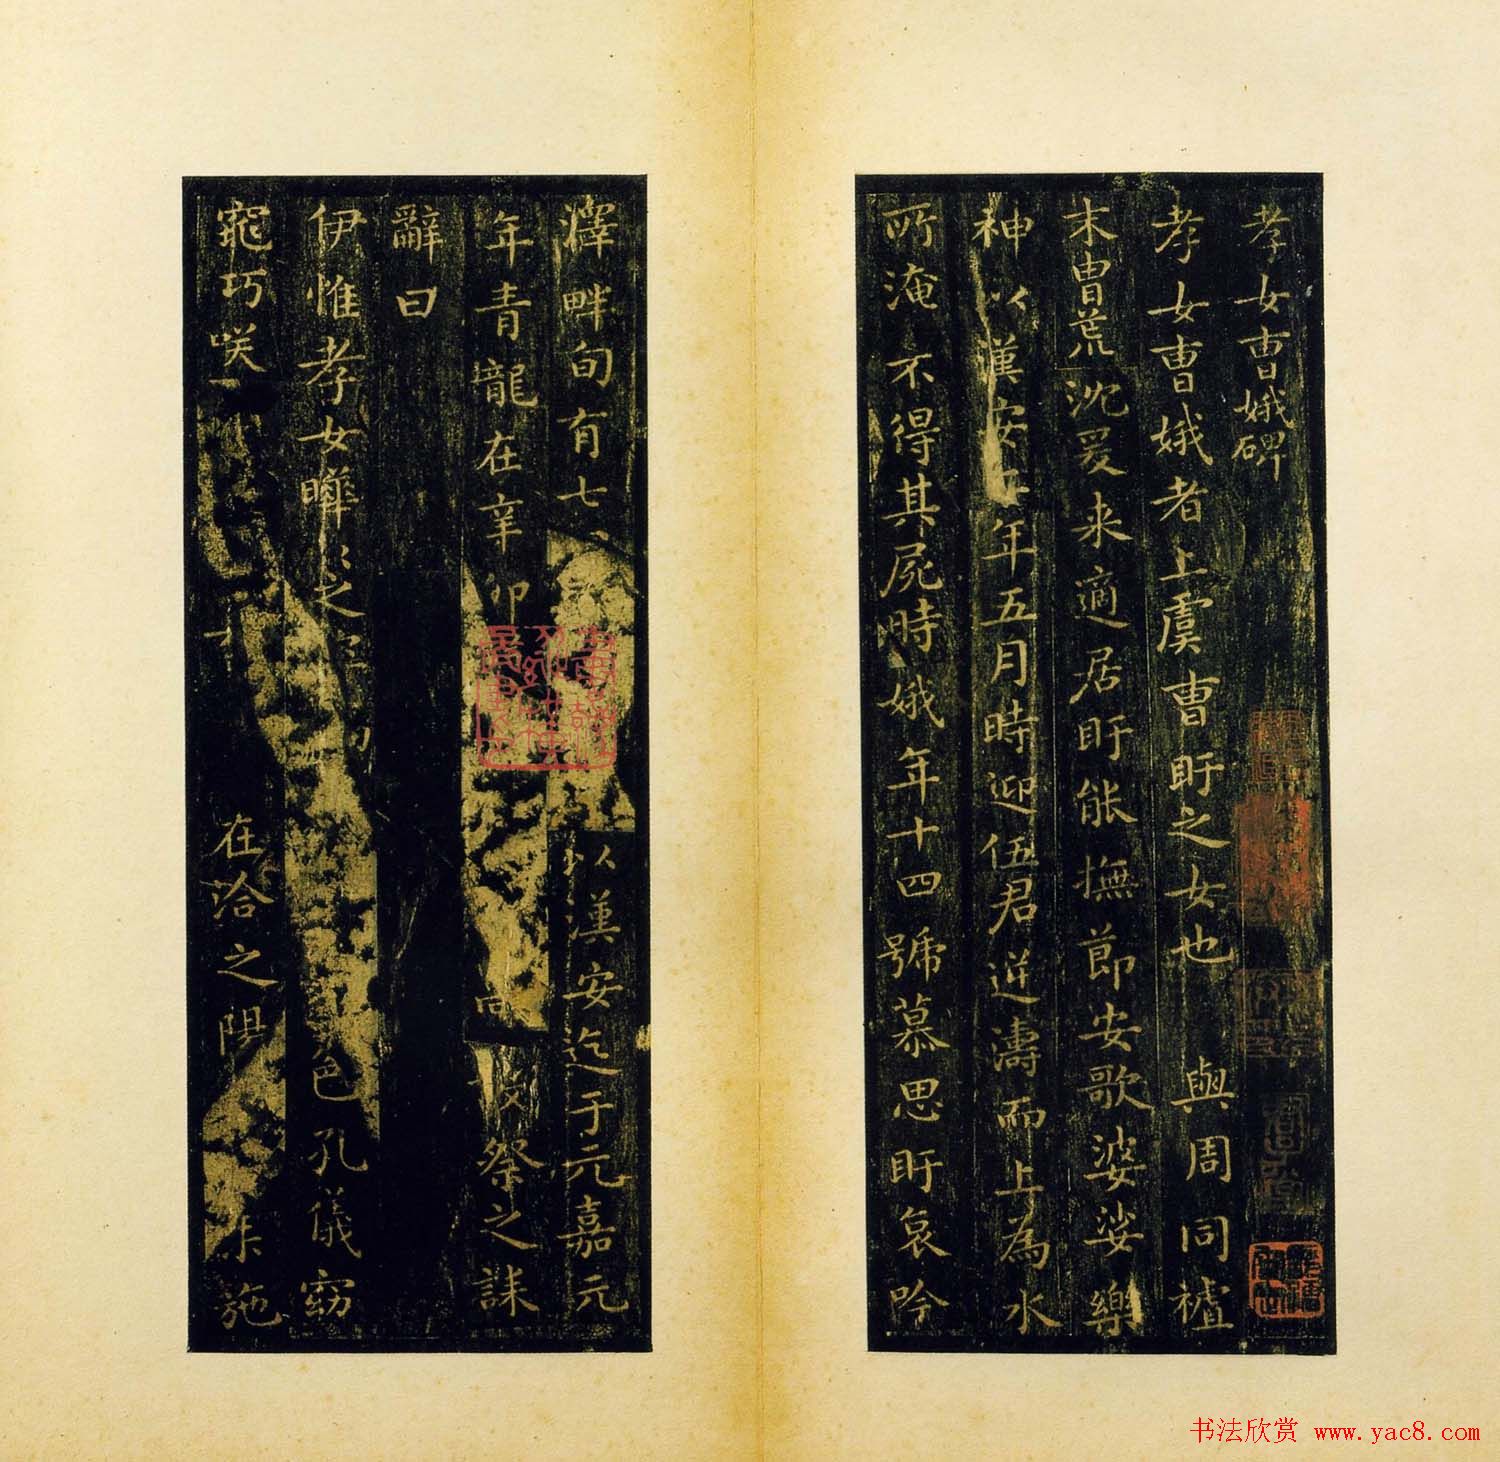 孝女曹娥碑
孝女曹娥者上虞曹盱之女也與周同禇
末胄荒沈爰来適居盱能撫節安歌婆娑樂
神以漢安二年五月時迎伍君逆濤而上為水
所淹不得其屍時娥年十四號慕思盱哀吟
澤畔旬有七
以漢安迄于元嘉元
年青龍在辛卯
祭之誄
辭曰
伊惟孝女曄之
色孔儀窈
窕巧咲
在洽之陽
施
书法欣赏 www.yac8.com